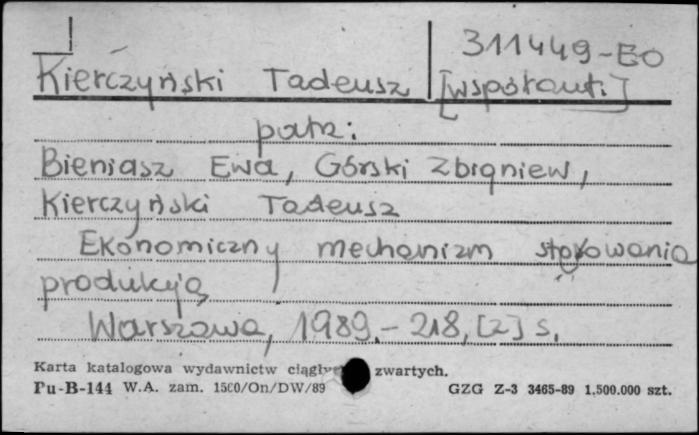 311449-EO
Kierczyński Tadeusz [współaut.]
patrz:
Bieniasz Ewa, Górski Zbigniew,
Kierczyński Tadeusz
Ekonomiczny mechanizm sterowania
produkcją
Warszawa, 1989. - 218, [2] s.
Karta katalogowa wydawnictw zwartych.
Pu-B-144 W.A. zam. 1500/On/DW/89 GZG Z-3 3465-89 1.500.000 szt.